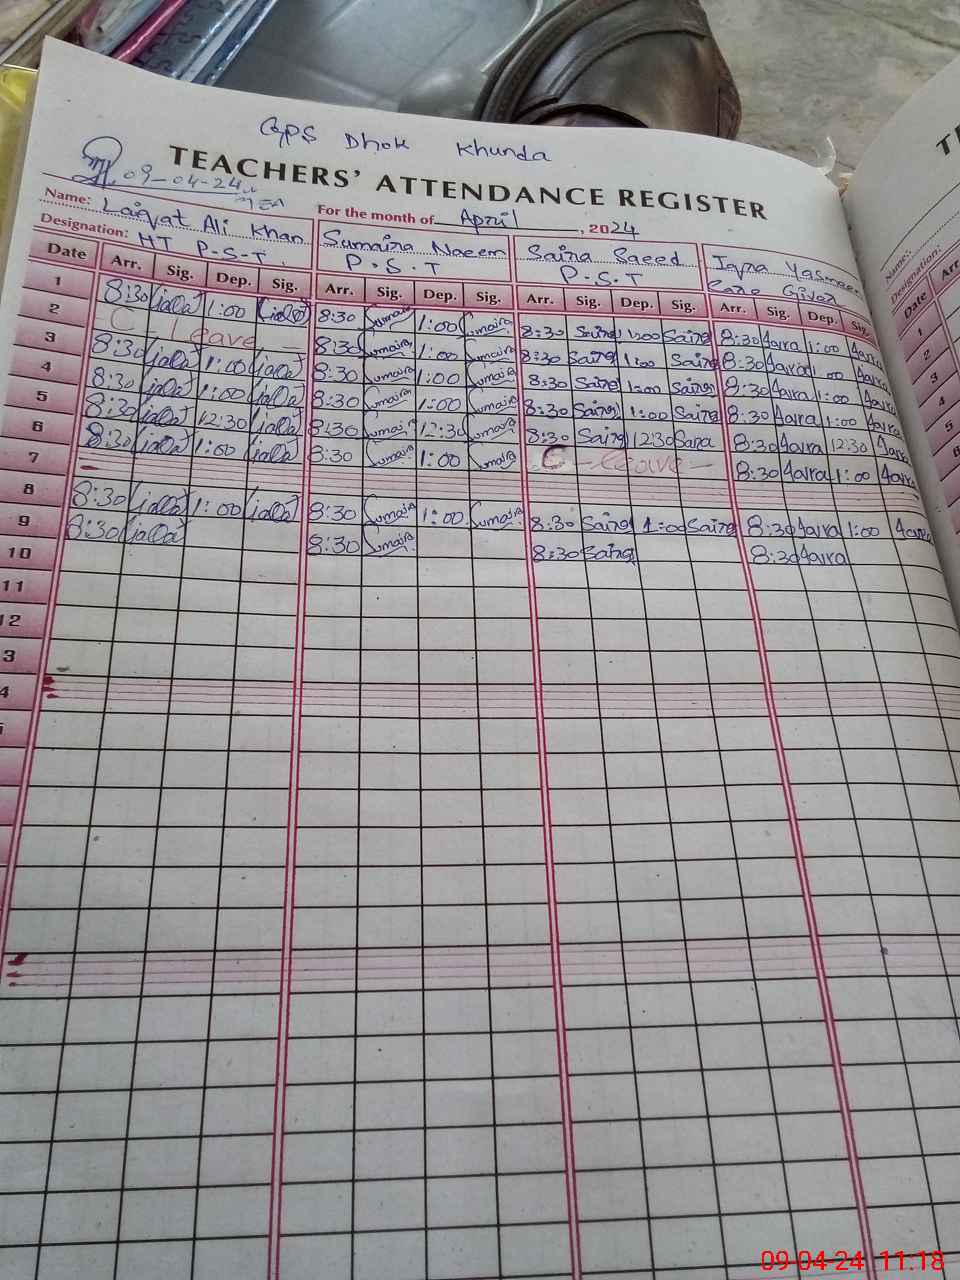 GPS Dhok Khunda
TEACHERS' ATTENDANCE REGISTER
09-04-24
MEA
For the month of April, 2024
Name: Laiqat Ali Khan Sumaira Naeem Saira Saeed Iqra Yasmeen
Designation: HT P.S.T P.S.T P.S.T Care Giver
Date Arr. Sig. Dep. Sig. Arr. Sig. Dep. Sig. Arr. Sig. Dep. Sig. Arr. Sig. Dep. Sig.
1 8:30 1:00 8:30 Sumaira 1:00 Sumaira 8:30 Saira 1:00 Saira 8:30 1:00
2 C - Leave 8:30 Sumaira 1:00 Sumaira 8:30 Saira 1:00 Saira 8:30 1:00
3 8:30 1:00 8:30 Sumaira 1:00 Sumaira 8:30 Saira 1:00 Saira 8:30 1:00
4 8:30 1:00 8:30 Sumaira 1:00 Sumaira 8:30 Saira 1:00 Saira 8:30 1:00
5 8:30 12:30 8:30 Sumaira 12:30 Sumaira 8:30 Saira 12:30 Saira 8:30 12:30
6 8:30 1:00 8:30 Sumaira 1:00 Sumaira C - leave - 8:30 1:00
7
8 8:30 1:00 8:30 Sumaira 1:00 Sumaira 8:30 Saira 1:00 Saira 8:30 1:00
9 8:30 8:30 Sumaira 8:30 Saira 8:30
10
11
12
3
4
Name:
Designation:
Date Arr.
1
2
3
4
5
6
09-04-24 11:18